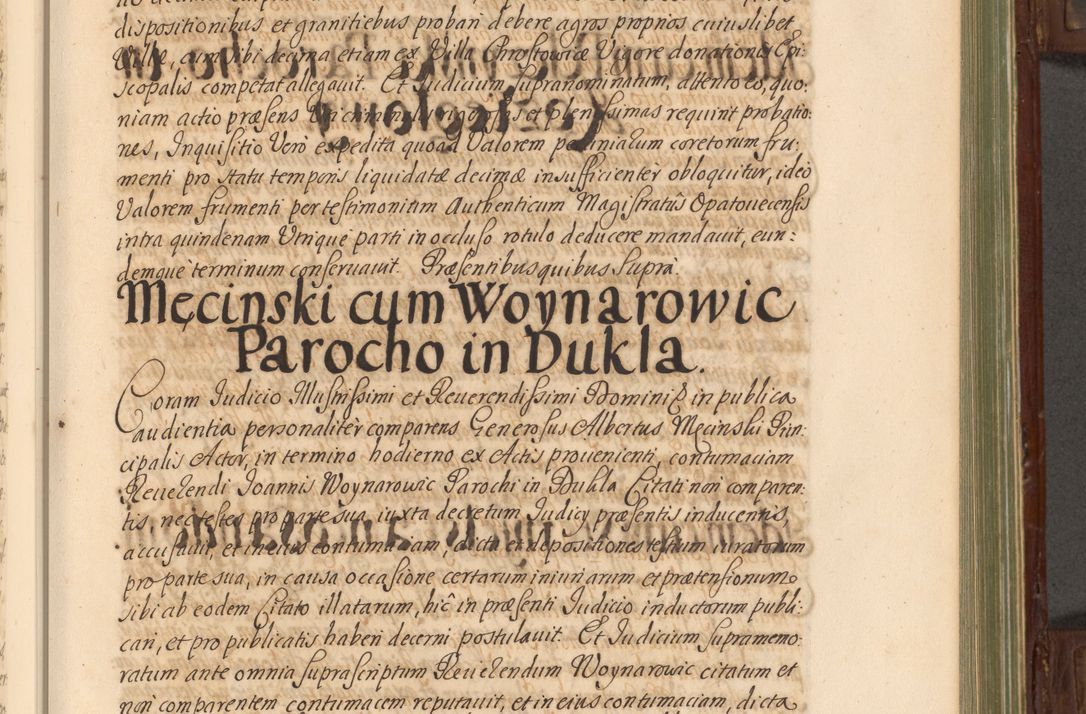 dispositionibus et granitiebus probari debere agros proprios cuiuslibet
Villæ, cum sibi decima etiam ex Villa Chrostowice Vigore donationis Epi:
scopalis competat allegauit. Et Iudicium supranominatum, attento eo, quo:
niam actio præsens Vti criminalis rigorosas et plenissimas requirit probatio:
nes, Inquisitio Verò expedita quoad Valorem pecuniarum coretorum fru:
menti pro statu temporis liquidatæ decimæ insufficienter obloquitur, ideò
Valorem frumenti per testimonium Authenticum Magistratûs Opatouecensis
intra quindenam Vtrique parti in occluso rotulo deducere mandauit, eun:
demque terminum conseruauit. Præsentibus quibus Supra.
Męcinski cum Woynarowic
Parocho in Dukla.
Coram Iudicio Illustrissimi et Reuerendissimi Domini in publica
audientia personaliter comparens Generosus Albertus Męcinski Prin:
cipalis Actor, in termino hodierno ex Actis proueniente, contumaciam
Reuerendi Ioannis Woynarowic Parochi in Dukla Citati non comparen:
tis, nec testes pro parte sua iuxta decretum Iudicij præsentis inducentis,
accusauit, et in eius contumaciam, dicta et depositiones testium iuratorum
pro parte sua, in causa occasione certarum iniuriarum et prætensionum
sibi ab eodem Citato illatarum, hîc in præsenti Iudicio inductorum publi:
cari, et pro publicatis haberi decerni postulauit. Et Iudicium supramemo:
ratum ante omnia suprascriptum Reuerendum Woynarowic citatum et
non comparentem contumacem reputauit, et in eius contumaciam, dicta